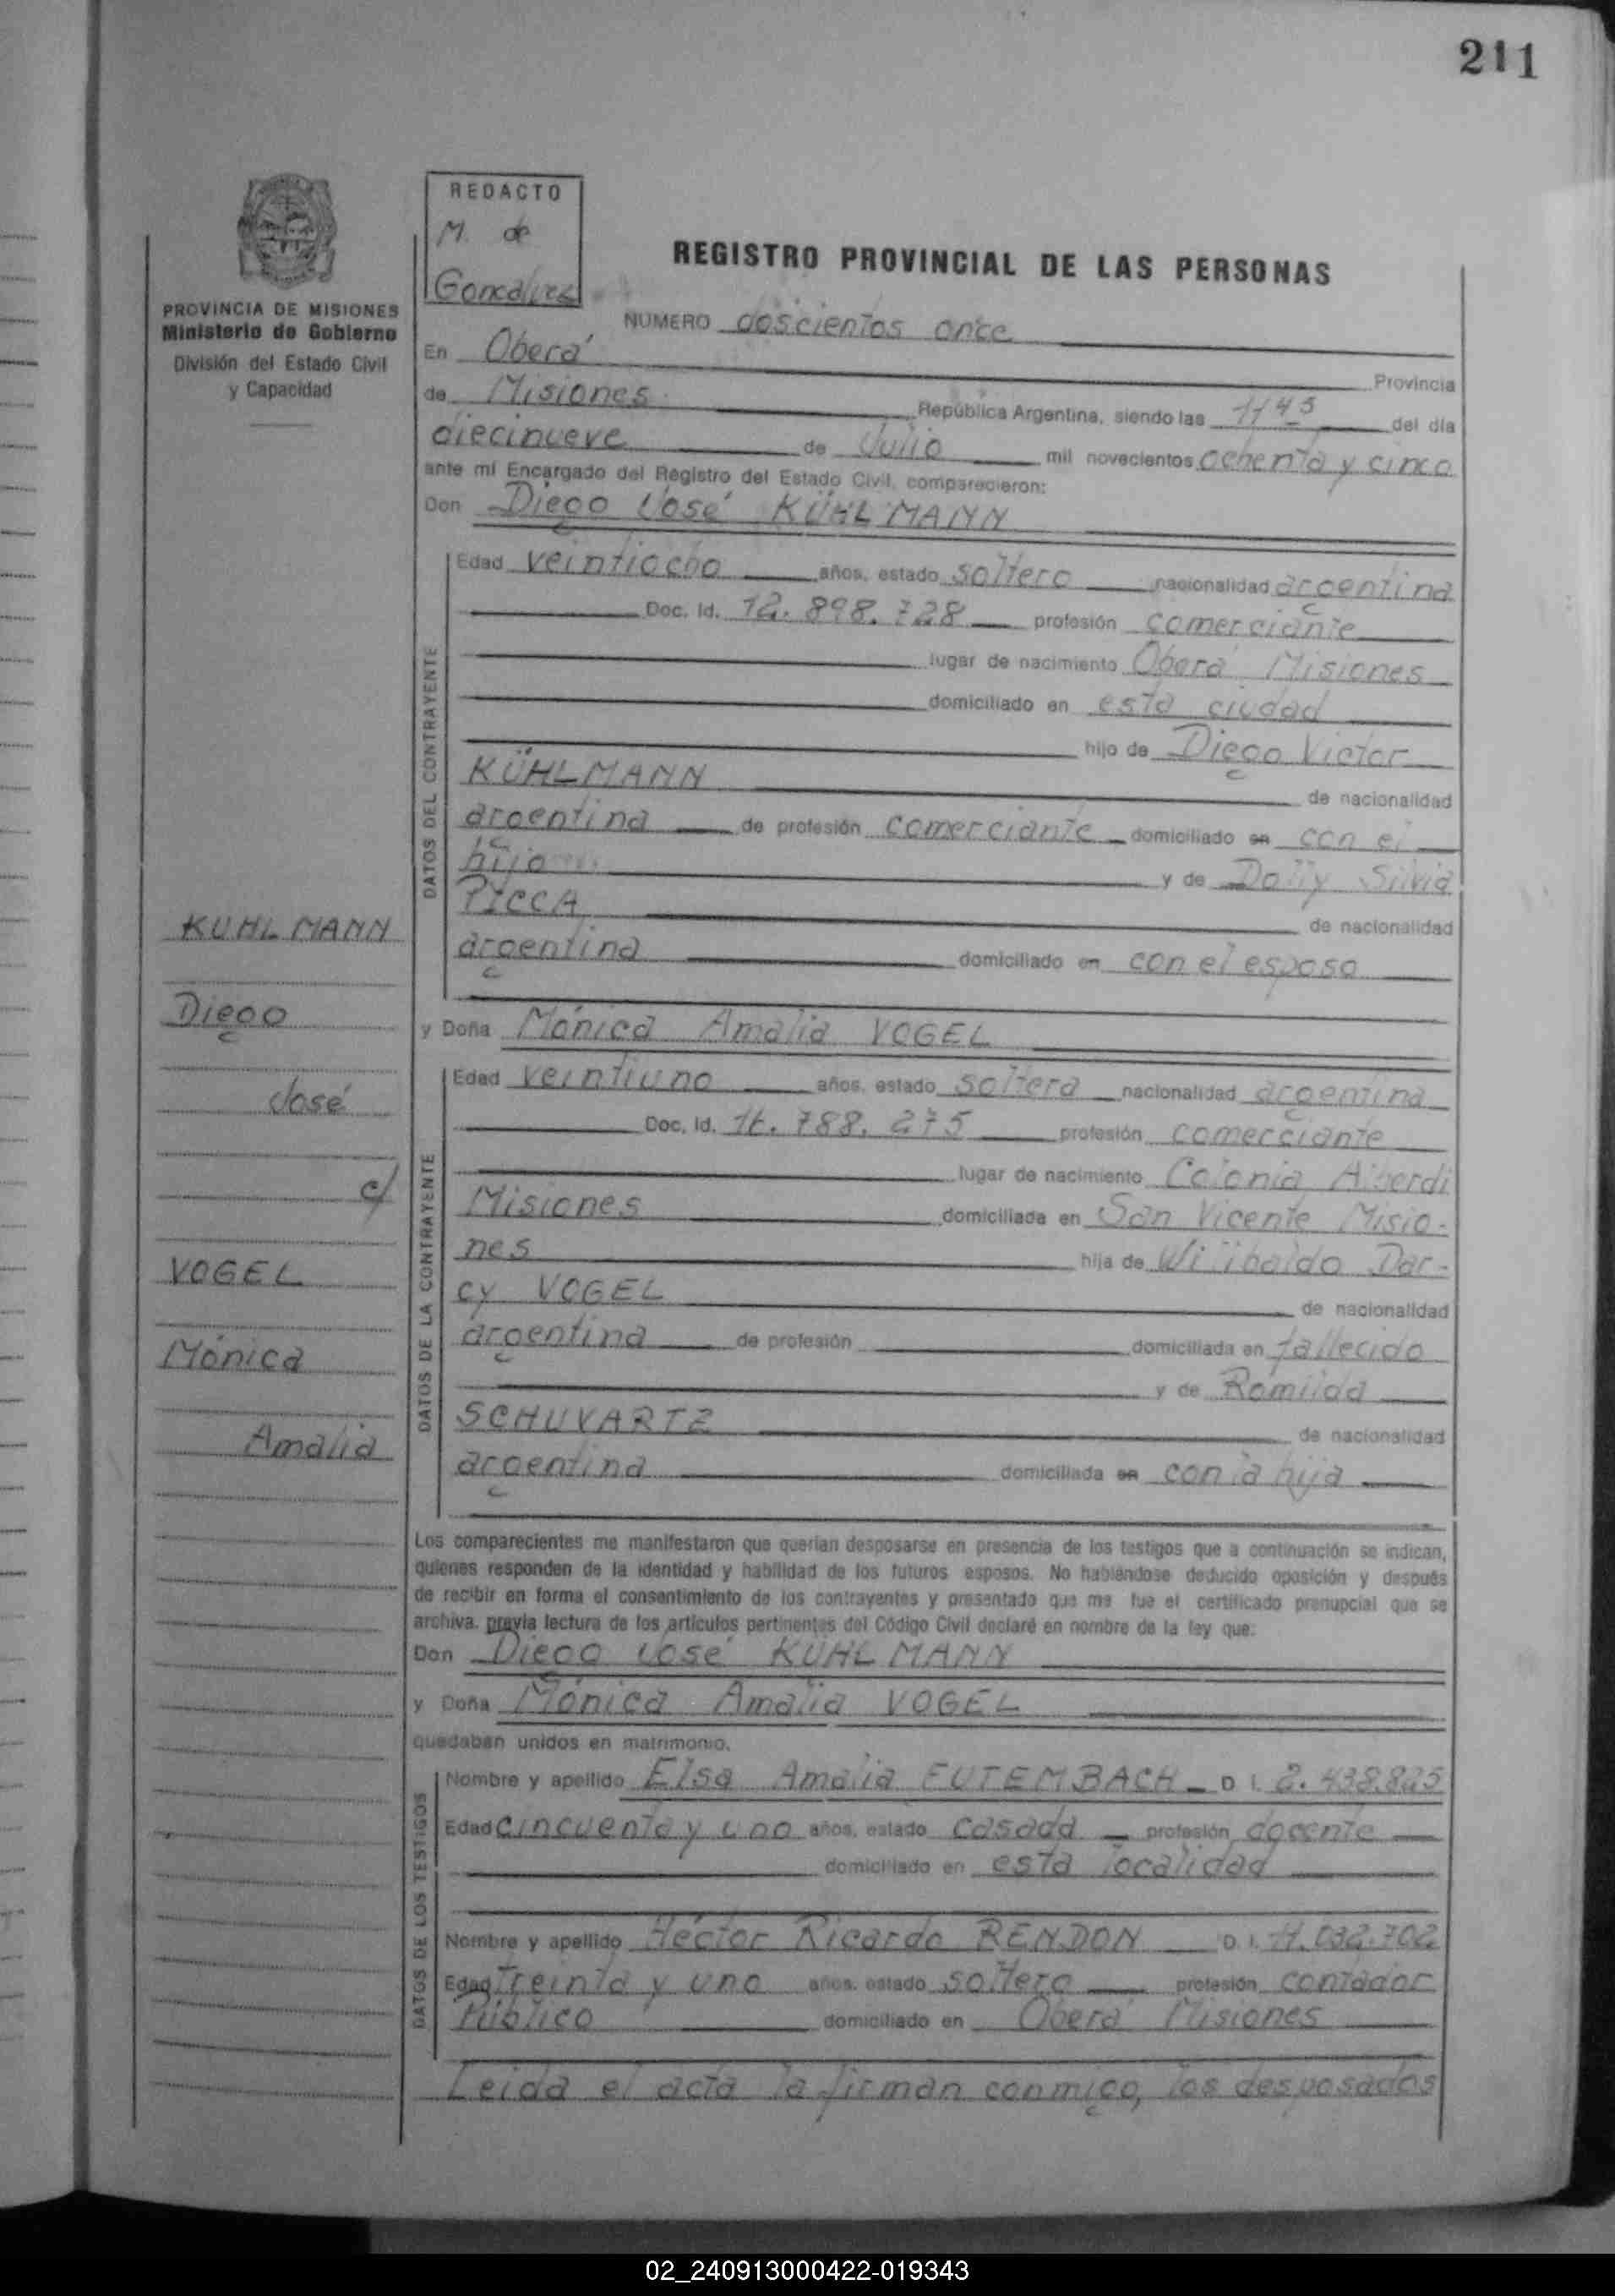 211
REDACTO
M. de
Goncalves
REGISTRO PROVINCIAL DE LAS PERSONAS
PROVINCIA DE MISIONES
Ministerio de Gobierno
División del Estado Civil
y Capacidad
NUMERO doscientos once
En Oberá Provincia
de Misiones República Argentina, siendo las 11 45 del día
diecinueve de Julio mil novecientos ochenta y cinco
ante mí Encargado del Registro del Estado Civil, comparecieron:
Don Diego José KÜHLMANN
DATOS DEL CONTRAYENTE
Edad veintiocho años, estado soltero nacionalidad argentina
Doc. Id. 12.898.728 profesión comerciante
lugar de nacimiento Oberá Misiones
domiciliado en esta ciudad
hijo de Diego Victor
KÜHLMANN de nacionalidad
argentina de profesión comerciante domiciliado en con el
hijo y de Dolly Silvia
PICCA de nacionalidad
argentina domiciliado en con el esposo
KUHLMANN
Diego
José
c/
VOGEL
Mónica
Amalia
y Doña Mónica Amalia VOGEL
DATOS DE LA CONTRAYENTE
Edad veintiuno años, estado soltera nacionalidad argentina
Doc. Id. 16.788.275 profesión comerciante
lugar de nacimiento Colonia Alberdi
Misiones domiciliada en San Vicente Misio-
nes hija de Wilibaldo Dar-
cy VOGEL de nacionalidad
argentina de profesión domiciliada en fallecido
y de Romilda
SCHUVARTZ de nacionalidad
argentina domiciliada en con la hija
Los comparecientes me manifestaron que querían desposarse en presencia de los testigos que a continuación se indican,
quienes responden de la identidad y habilidad de los futuros esposos. No habiéndose deducido oposición y después
de recibir en forma el consentimiento de los contrayentes y presentado que me fue el certificado prenupcial que se
archiva, previa lectura de los artículos pertinentes del Código Civil declaré en nombre de la ley que:
Don Diego José KÜHLMANN
y Doña Mónica Amalia VOGEL
quedaban unidos en matrimonio.
DATOS DE LOS TESTIGOS
Nombre y apellido Elsa Amalia EUTEMBACH D I. 2.438.825
Edad cincuenta y uno años, estado casada profesión docente
domiciliado en esta localidad
Nombre y apellido Héctor Ricardo RENDON D. I. 11.032.702
Edad treinta y uno años, estado soltero profesión contador
Público domiciliado en Oberá Misiones
Leida el acta la firman conmigo, los desposados
02_240913000422-019343